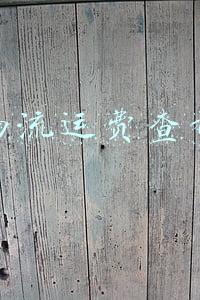 流运费查